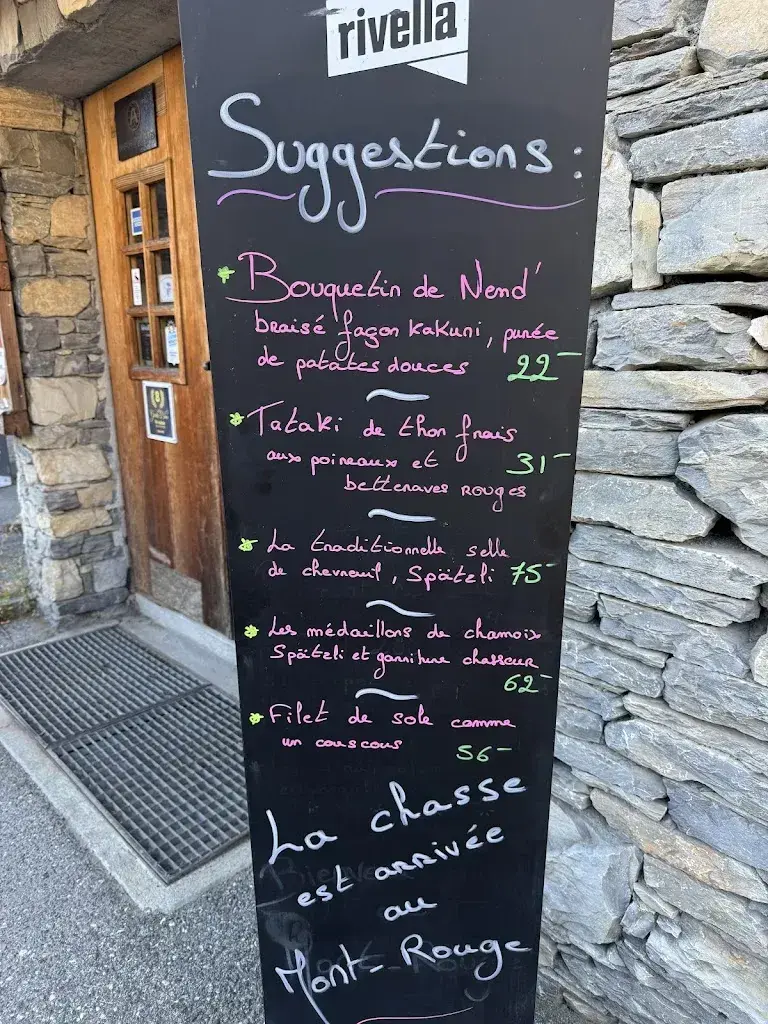 rivella
Suggestions :
Bouquetin de Nend'
braisé façon kakuni, purée
de patates douces 22-
Tataki de thon frais
aux poireaux et 31-
betteraves rouges
La traditionnelle selle
de chevreuil, Spätzli 75-
Les médaillons de chamois
Spätzli et garniture chasseur
62-
Filet de sole comme
un couscous 56-
La chasse
est arrivée
au
Mont-Rouge